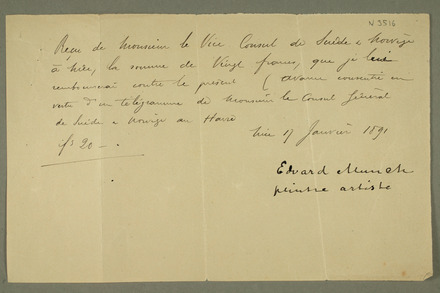 N 3516
Reçu de Monsieur le Vice Consul de Suède & Norvège
à Nice, la somme de Vingt francs, que je lui
rembourserai contre le présent (avance consentie en
vertu d'un télégramme de Monsieur le Consul Général
de Suède & Norvège au Havre
fs 20 - .
Nice 17 Janvier 1891
Edvard Munch
peintre artiste